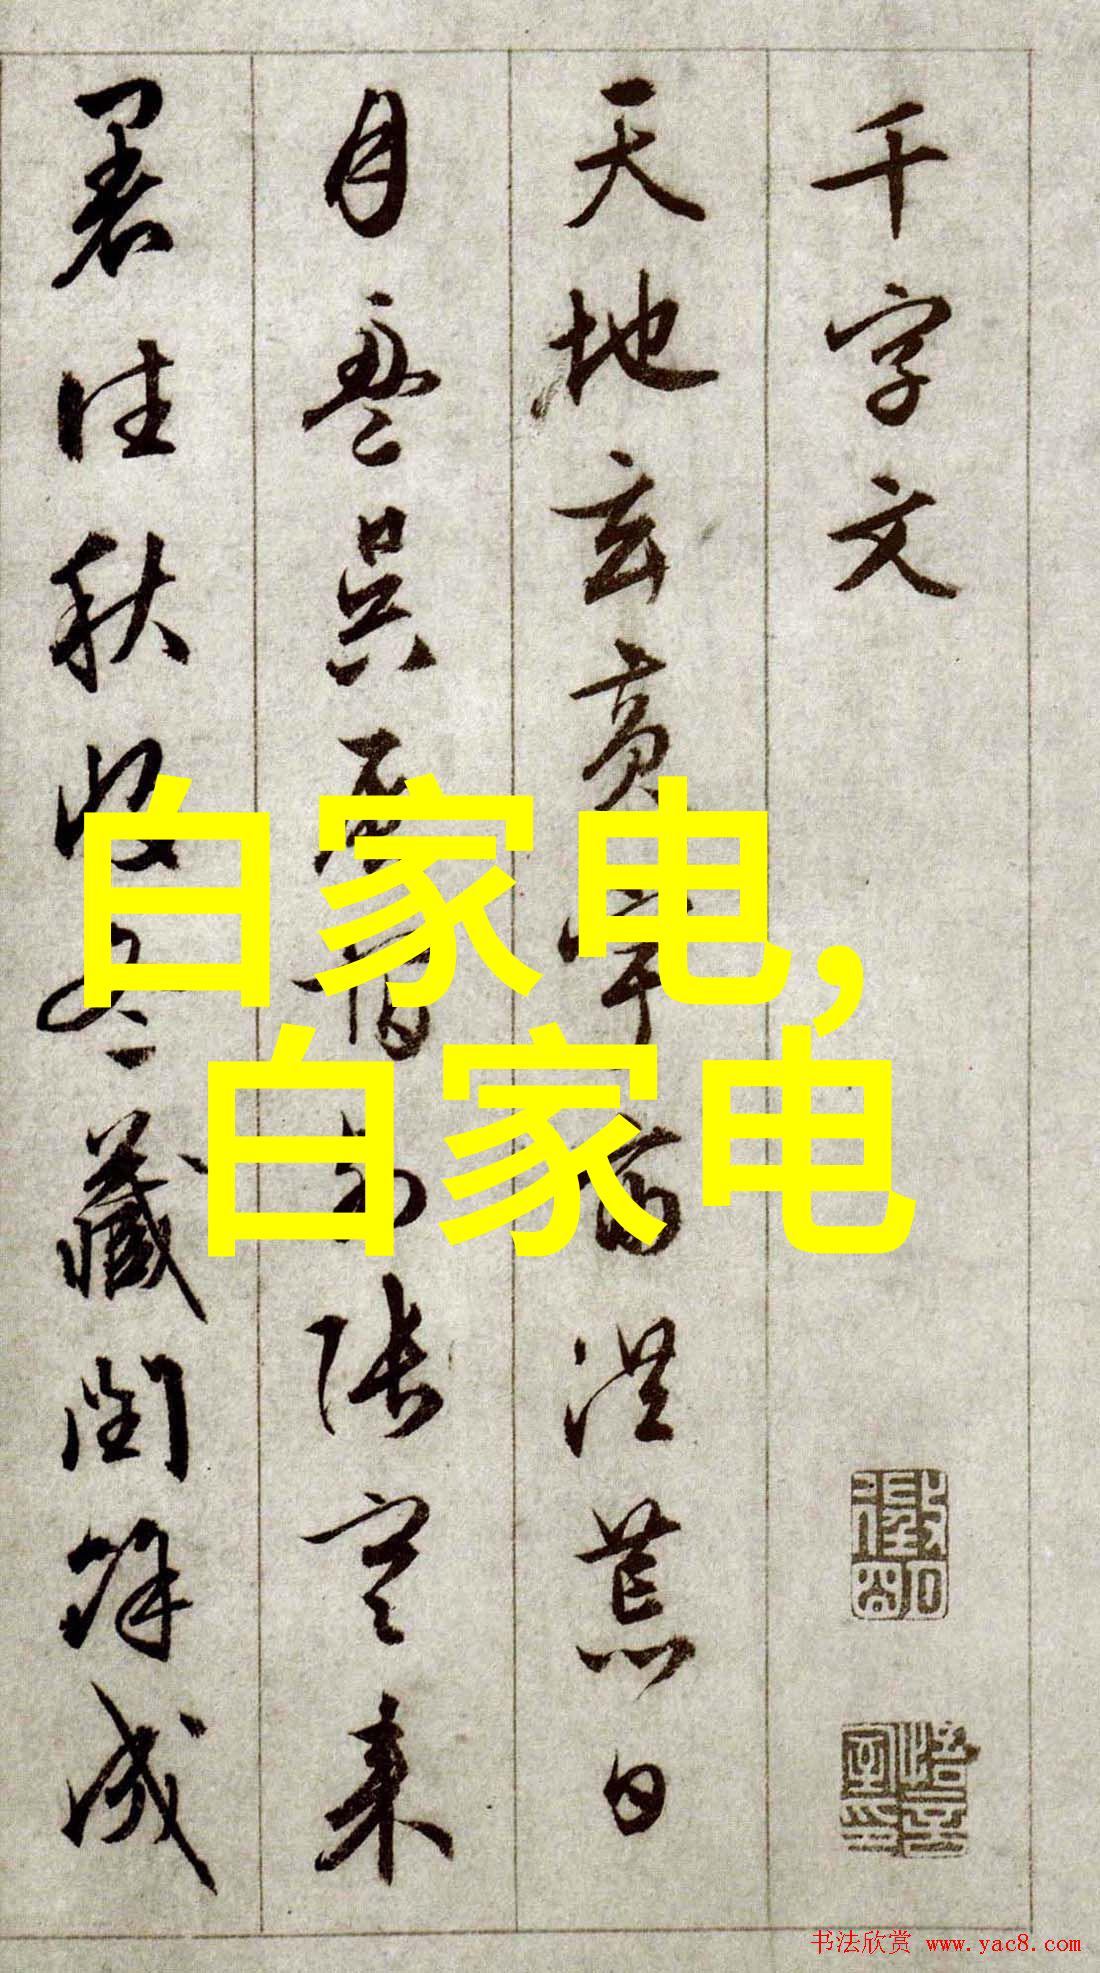 千字文
天地玄黃宇宙洪荒日
月盈昃辰宿列張寒來
暑往秋收冬藏閏餘成
白家电,
白家电
书法欣赏 www.yac8.com